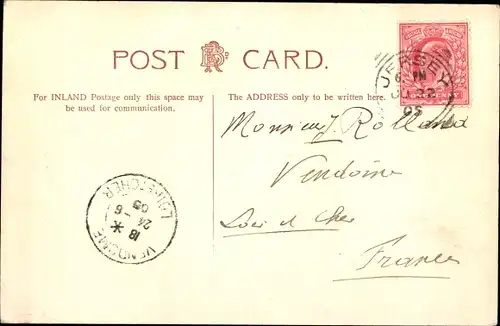 POST CARD.
For INLAND Postage only this space may
be used for communication.
The ADDRESS only to be written here.
JERSEY
05
Monsieur J. Rolland
Vendôme
Loir et Cher
France
VENDOME
18 *
24 - 6
05
LOIR-ET-CHER